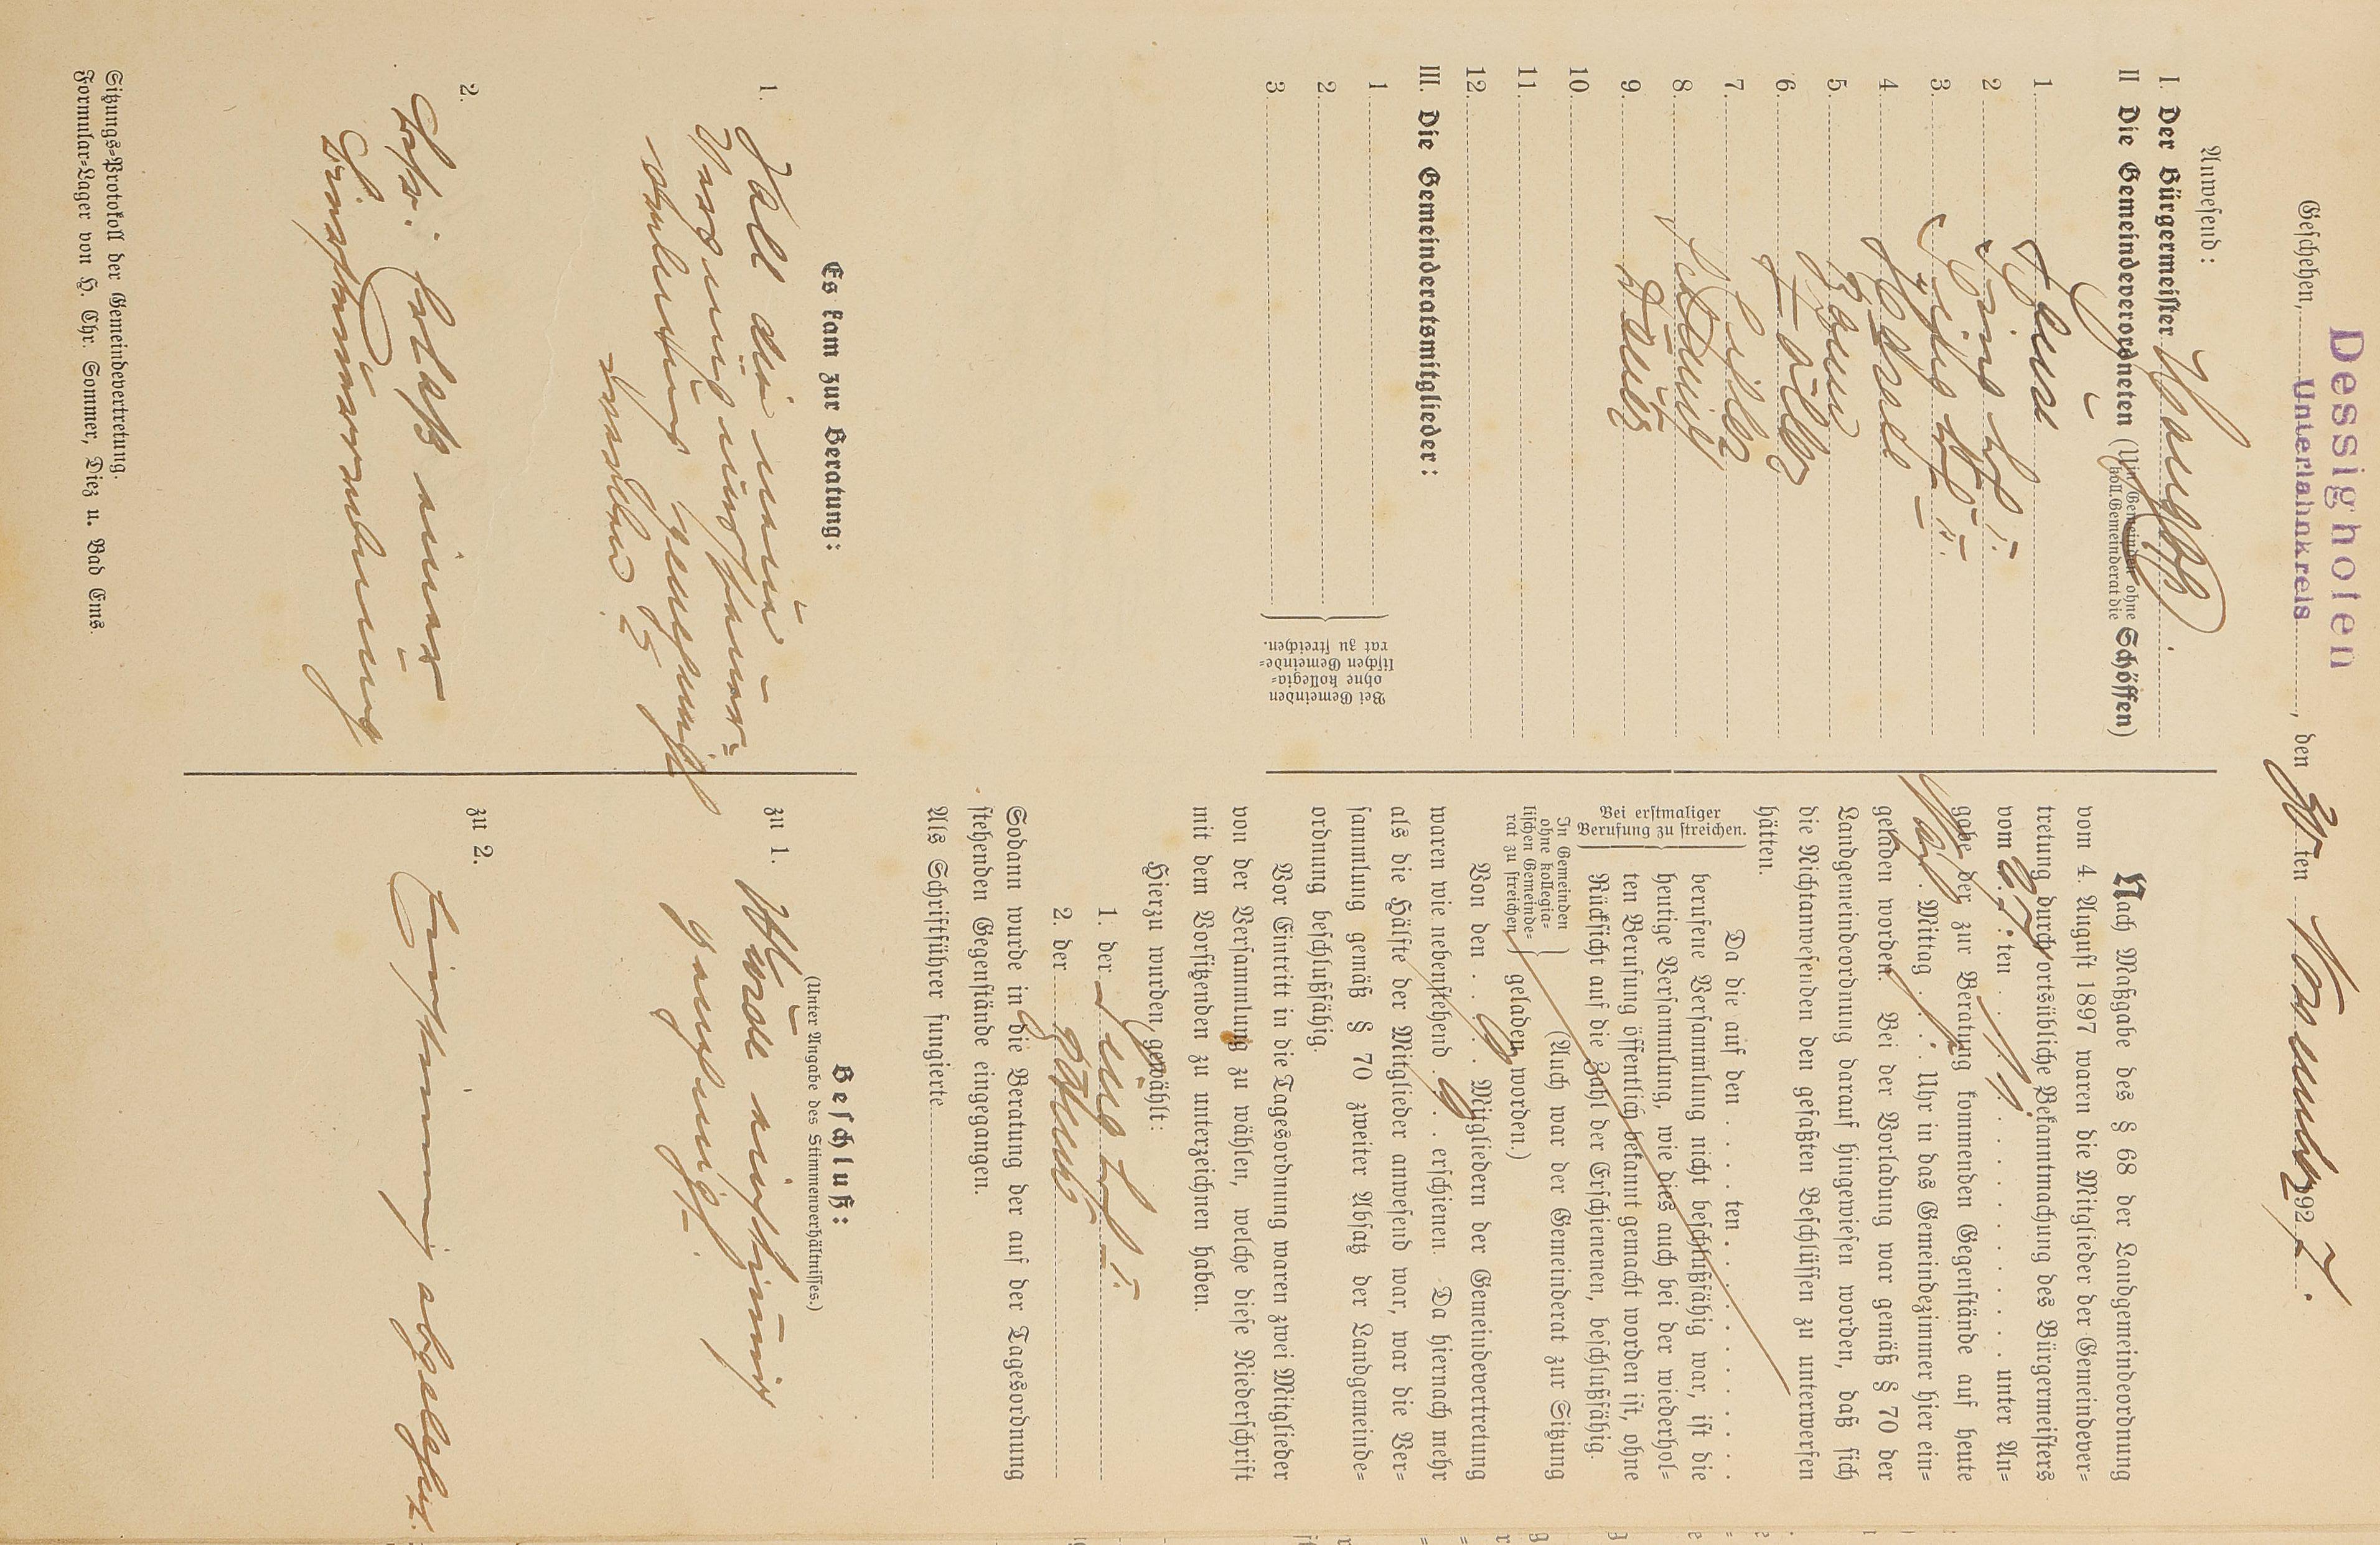 Dessighofen
Geschehen, Unterlahnkreis, den 30ten November 1927.
Anwesend:
I. Der Bürgermeister
II Die Gemeindeverordneten (In Gemeinden ohne koll. Gemeinderat die Schöffen)
1.
2
3
4
5.
6.
7.
8.
9.
10.
11.
12.
III. Die Gemeinderatsmitglieder:
1
2.
3
Bei Gemeinden
ohne kollegia-
lischen Gemeinde-
rat zu streichen.
Nach Maßgabe des § 68 der Landgemeindeordnung
vom 4. August 1897 waren die Mitglieder der Gemeindever-
tretung durch ortsübliche Bekanntmachung des Bürgermeisters
vom 27. ten . . 11. . . . . . . . . . unter An-
gabe der zur Beratung kommenden Gegenstände auf heute
Mittag . . . . Uhr in das Gemeindezimmer hier ein-
geladen worden. Bei der Vorladung war gemäß § 70 der
Landgemeindeordnung darauf hingewiesen worden, daß sich
die Nichtanwesenden den gefaßten Beschlüssen zu unterwerfen
hätten.
Bei erstmaliger
Berufung zu streichen.
Da die auf den . . . . ten . . . . . . . . . .
berufene Versammlung nicht beschlußfähig war, ist die
heutige Versammlung, wie dies auch bei der wiederhol-
ten Berufung öffentlich bekannt gemacht worden ist, ohne
Rücksicht auf die Zahl der Erschienenen, beschlußfähig.
In Gemeinden
ohne kollegia-
lischen Gemeinde-
rat zu streichen
(Auch war der Gemeinderat zur Sitzung
geladen worden.)
Von den . . 9 . . Mitgliedern der Gemeindevertretung
waren wie nebenstehend . 9 . . erschienen. Da hiernach mehr
als die Hälfte der Mitglieder anwesend war, war die Ver-
sammlung gemäß § 70 zweiter Absatz der Landgemeinde-
ordnung beschlußfähig.
Vor Eintritt in die Tagesordnung waren zwei Mitglieder
von der Versammlung zu wählen, welche diese Niederschrift
mit dem Vorsitzenden zu unterzeichnen haben.
Hierzu wurden gewählt:
1. der
2. der
Sodann wurde in die Beratung der auf der Tagesordnung
stehenden Gegenstände eingegangen.
Als Schriftführer fungierte
Es kam zur Beratung:
1. Soll die neue
verordnung genehmigt
werden?
2. Betr. Erlaß einer
Biersteuerordnung
Beschluß:
(Unter Angabe des Stimmenverhältnisses.)
zu 1. Wurde einstimmig
genehmigt.
zu 2.
Einstimmig abgelehnt.
Sitzungs-Protokoll der Gemeindevertretung.
Formular-Lager von H. Chr. Sommer, Diez u. Bad Ems.